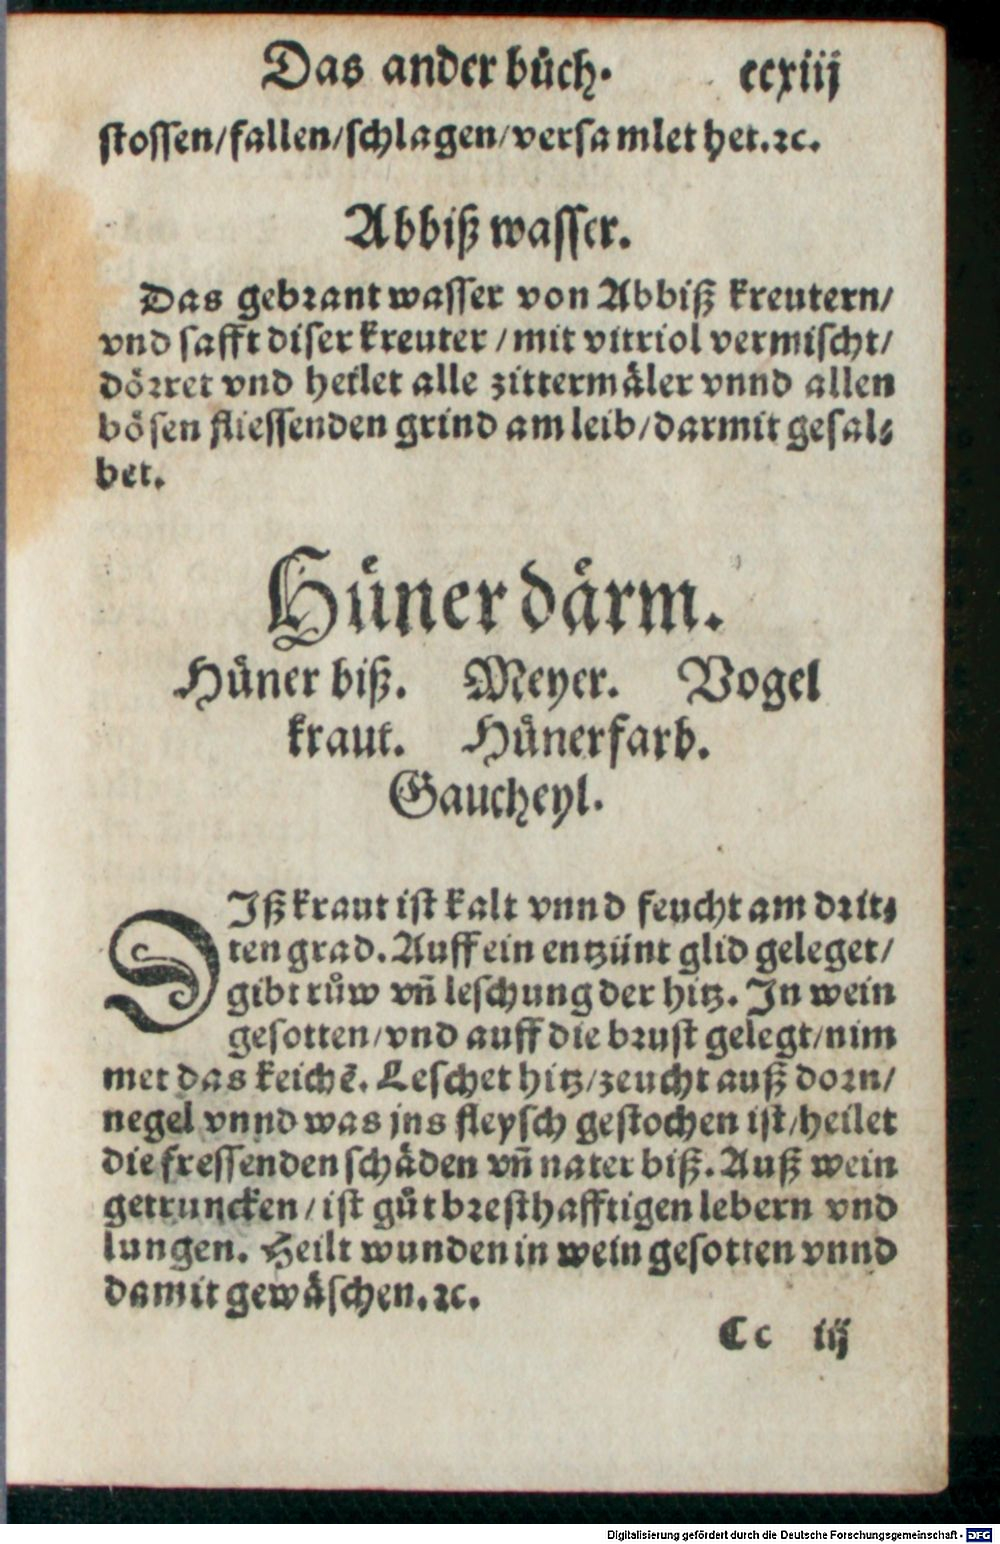 Das ander bůch. ccxiij
stossen/fallen/schlagen/versamlet het.ꝛc.
Abbiß wasser.
Das gebrant wasser von Abbiß kreutern/
vnd safft diser kreuter/mit vitriol vermischt/
dörret vnd heilet alle zittermäler vnnd allen
bösen fliessenden grind am leib/darmit gesal⸗
bet.
Hüner därm.
Hüner biß. Meyer. Vogel
kraut. Hünerfarb.
Gaucheyl.
DIß kraut ist kalt vnnd feucht am drit⸗
ten grad. Auff ein entzünt glid geleget/
gibt růw vñ leschung der hitz. In wein
gesotten/vnd auff die brust gelegt/nim
met das keichẽ. Leschet hitz/zeucht auß dorn/
negel vnnd was jns fleysch gestochen ist/heilet
die fressenden schäden vñ nater biß. Auß wein
getruncken/ist gůt bresthafftigen lebern vnd
lungen. Heilt wunden in wein gesotten vnnd
damit gewäschen.ꝛc.
Cc iij
Digitalisierung gefördert durch die Deutsche Forschungsgemeinschaft - DFG